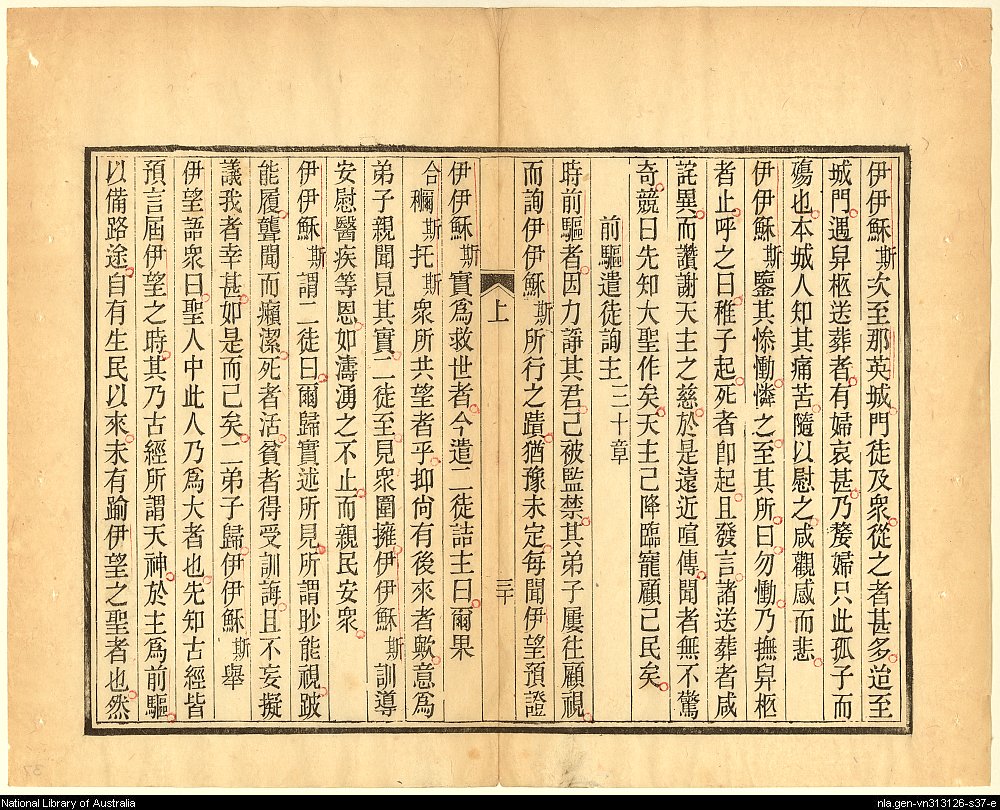 伊伊穌斯次至那英城門徒及衆從之者甚多迨至
城門遇舁柩送葬者有婦哀甚乃嫠婦只此孤子而
殤也本城人知其痛苦隨以慰之咸觀感而悲
伊伊穌斯鑒其慘慟憐之至其所曰勿慟乃撫舁柩
者止呼之曰稚子起死者卽起且發言諸送葬者咸
詫異而讚謝天主之慈於是遠近喧傳聞者無不驚
奇競曰先知大聖作矣天主已降臨寵顧己民矣
前驅遣徒詢主三十章
時前驅者因力諍其君已被監禁其弟子屢往顧視
而詢伊伊穌斯所行之蹟猶豫未定每聞伊望預證
上 三十
伊伊穌斯實爲救世者今遣二徒詰主曰爾果
合穪斯托斯衆所共望者乎抑尙有後來者歟意爲
弟子親聞見其實二徒至見衆圍擁伊伊穌斯訓導
安慰醫疾等恩如濤湧之不止而親民安衆
伊伊穌斯謂二徒曰爾歸實述所見所謂眇能視跛
能履聾聞而癩潔死者活貧者得受訓誨且不妄擬
議我者幸甚如是而已矣二弟子歸伊伊穌斯舉
伊望語衆曰聖人中此人乃爲大者也先知古經皆
預言屆伊望之時其乃古經所謂天神於主爲前驅
以備路途自有生民以來未有踰伊望之聖者也然
National Library of Australia
nla.gen-vn313126-s37-e